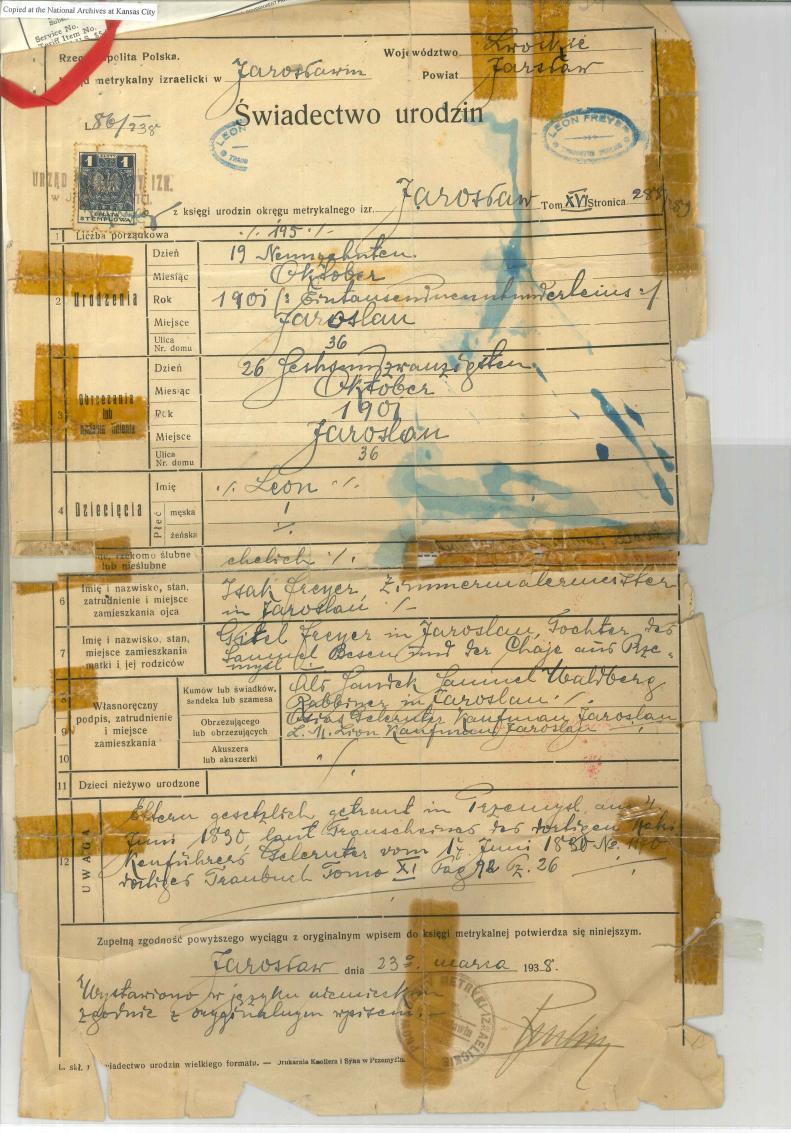 Copied at the National Archives at Kansas City
Service No.
Tariff Item No.
Rzec polita Polska.
Województwo Lwowskie
d metrykalny izraelicki w Jarosławiu
Powiat Jarosław
L. 86/I/938
Świadectwo urodzin
LEON
LEON FREYER
1 1
OPŁATA STEMPLOWA
URZĄD IZR.
z księgi urodzin okręgu metrykalnego izr. Jarosław Tom XVI Stronica 288
1 Liczba porządkowa ·/. 195 ·/.
2 Urodzenia
Dzień 19 Neunzehnten
Miesiąc Oktober
Rok 1901 /: Eintausendneunhunderteins :/
Miejsce Jaroslau
Ulica Nr. domu 36
3 Obrzezania lub nadania imienia
Dzień 26 Sechsundzwanzigsten
Miesiąc Oktober
Rok 1901
Miejsce Jaroslau
Ulica Nr. domu 36
4 Dziecięcia
Imię ·/. Leon ·/.
Płeć męska 1
żeńska
rzekomo ślubne lub nieślubne ehelich ·/.
6 Imię i nazwisko, stan, zatrudnienie i miejsce zamieszkania ojca
Isak Freyer, Zimmermalermeister
in Jaroslau ·/.
7 Imię i nazwisko, stan, miejsce zamieszkania matki i jej rodziców
Gitel Freyer in Jaroslau, Tochter des
Samuel Besen und der Chaje aus Prze-
mysl
Własnoręczny podpis, zatrudnienie i miejsce zamieszkania
8 Kumów lub świadków, sandeka lub szamesa
Als Sandek Samuel Waldberg
Rabbiner in Jaroslau ·/.
9 Obrzezującego lub obrzezujących
Osias Gelernter Kaufman Jaroslau
L. M. Lion Kaufman Jaroslau
10 Akuszera lub akuszerki
11 Dzieci nieżywo urodzone
12 UWAGA
Eltern gesetzlich getraut in Przemysl, am 4.
Juni 1890 laut Trauscheines des dortigen Matri
kenführers Gelernter vom 17. Juni 1890 No.
dortiges Traubuch Tomo XI Pag 92 Pz. 26
Zupełną zgodność powyższego wyciągu z oryginalnym wpisem do księgi metrykalnej potwierdza się niniejszym.
Jarosław dnia 23go marca 1938.
Wystawiono w języku niemieckim
zgodnie z oryginalnym wpisem.
METRYK IZRAELICKIE
L. skł. wiadectwo urodzin wielkiego formatu. — Drukarnia Knollera i Syna w Przemyślu.